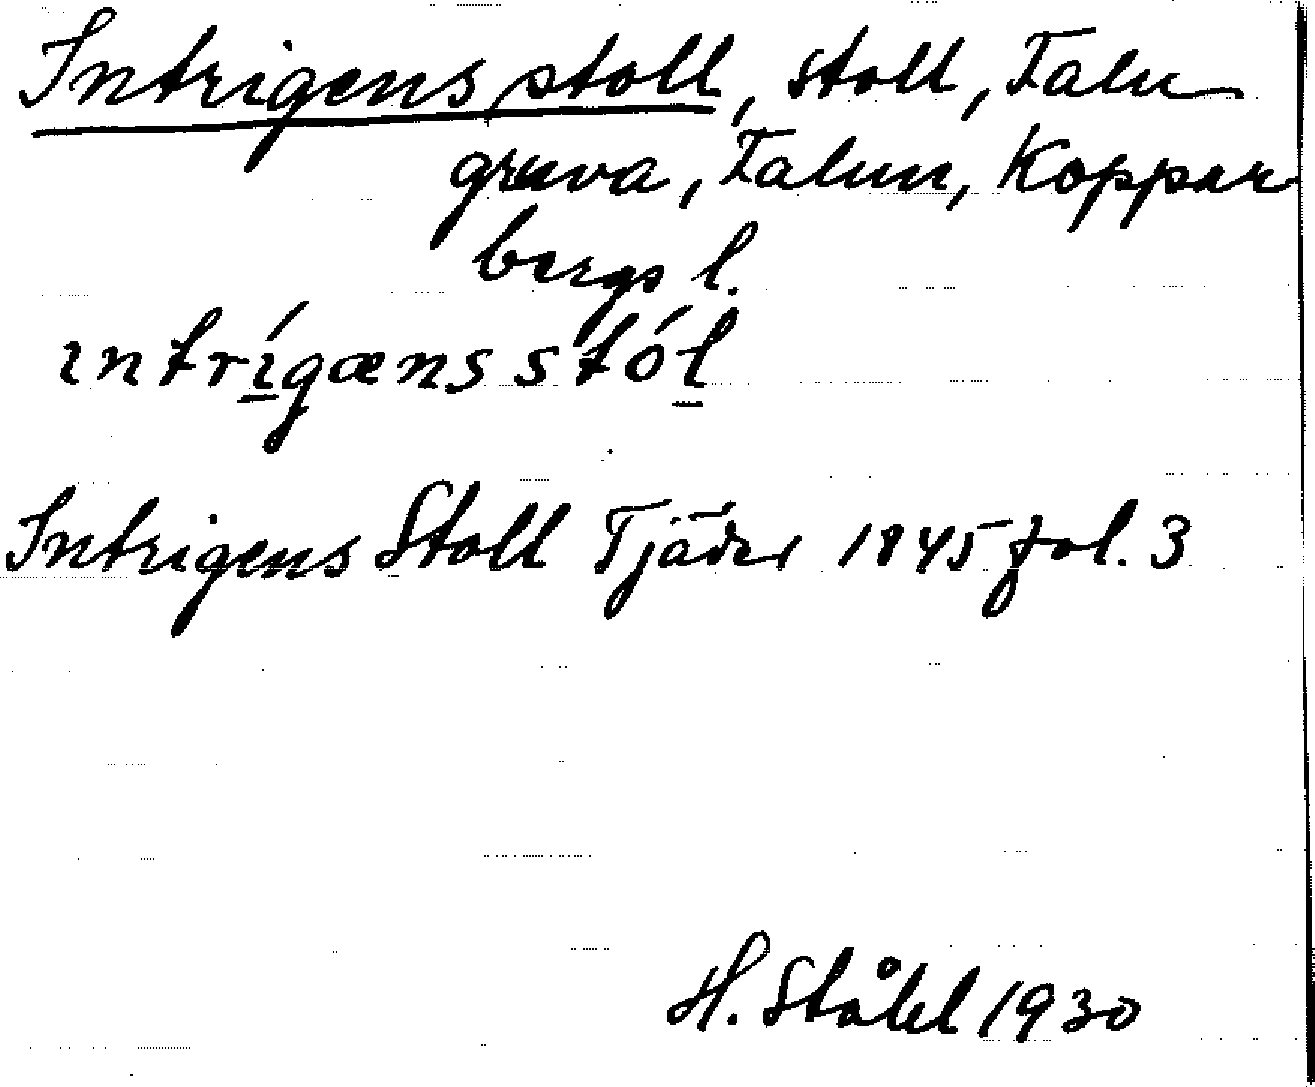 Intrigens stoll, stoll, Falu
gruva, Falun, Koppar
bergs l.
ıntrí̱gænsstóḻ
Intrigens Stoll Tjäder 1845 fol. 3
H. Ståhl 1930